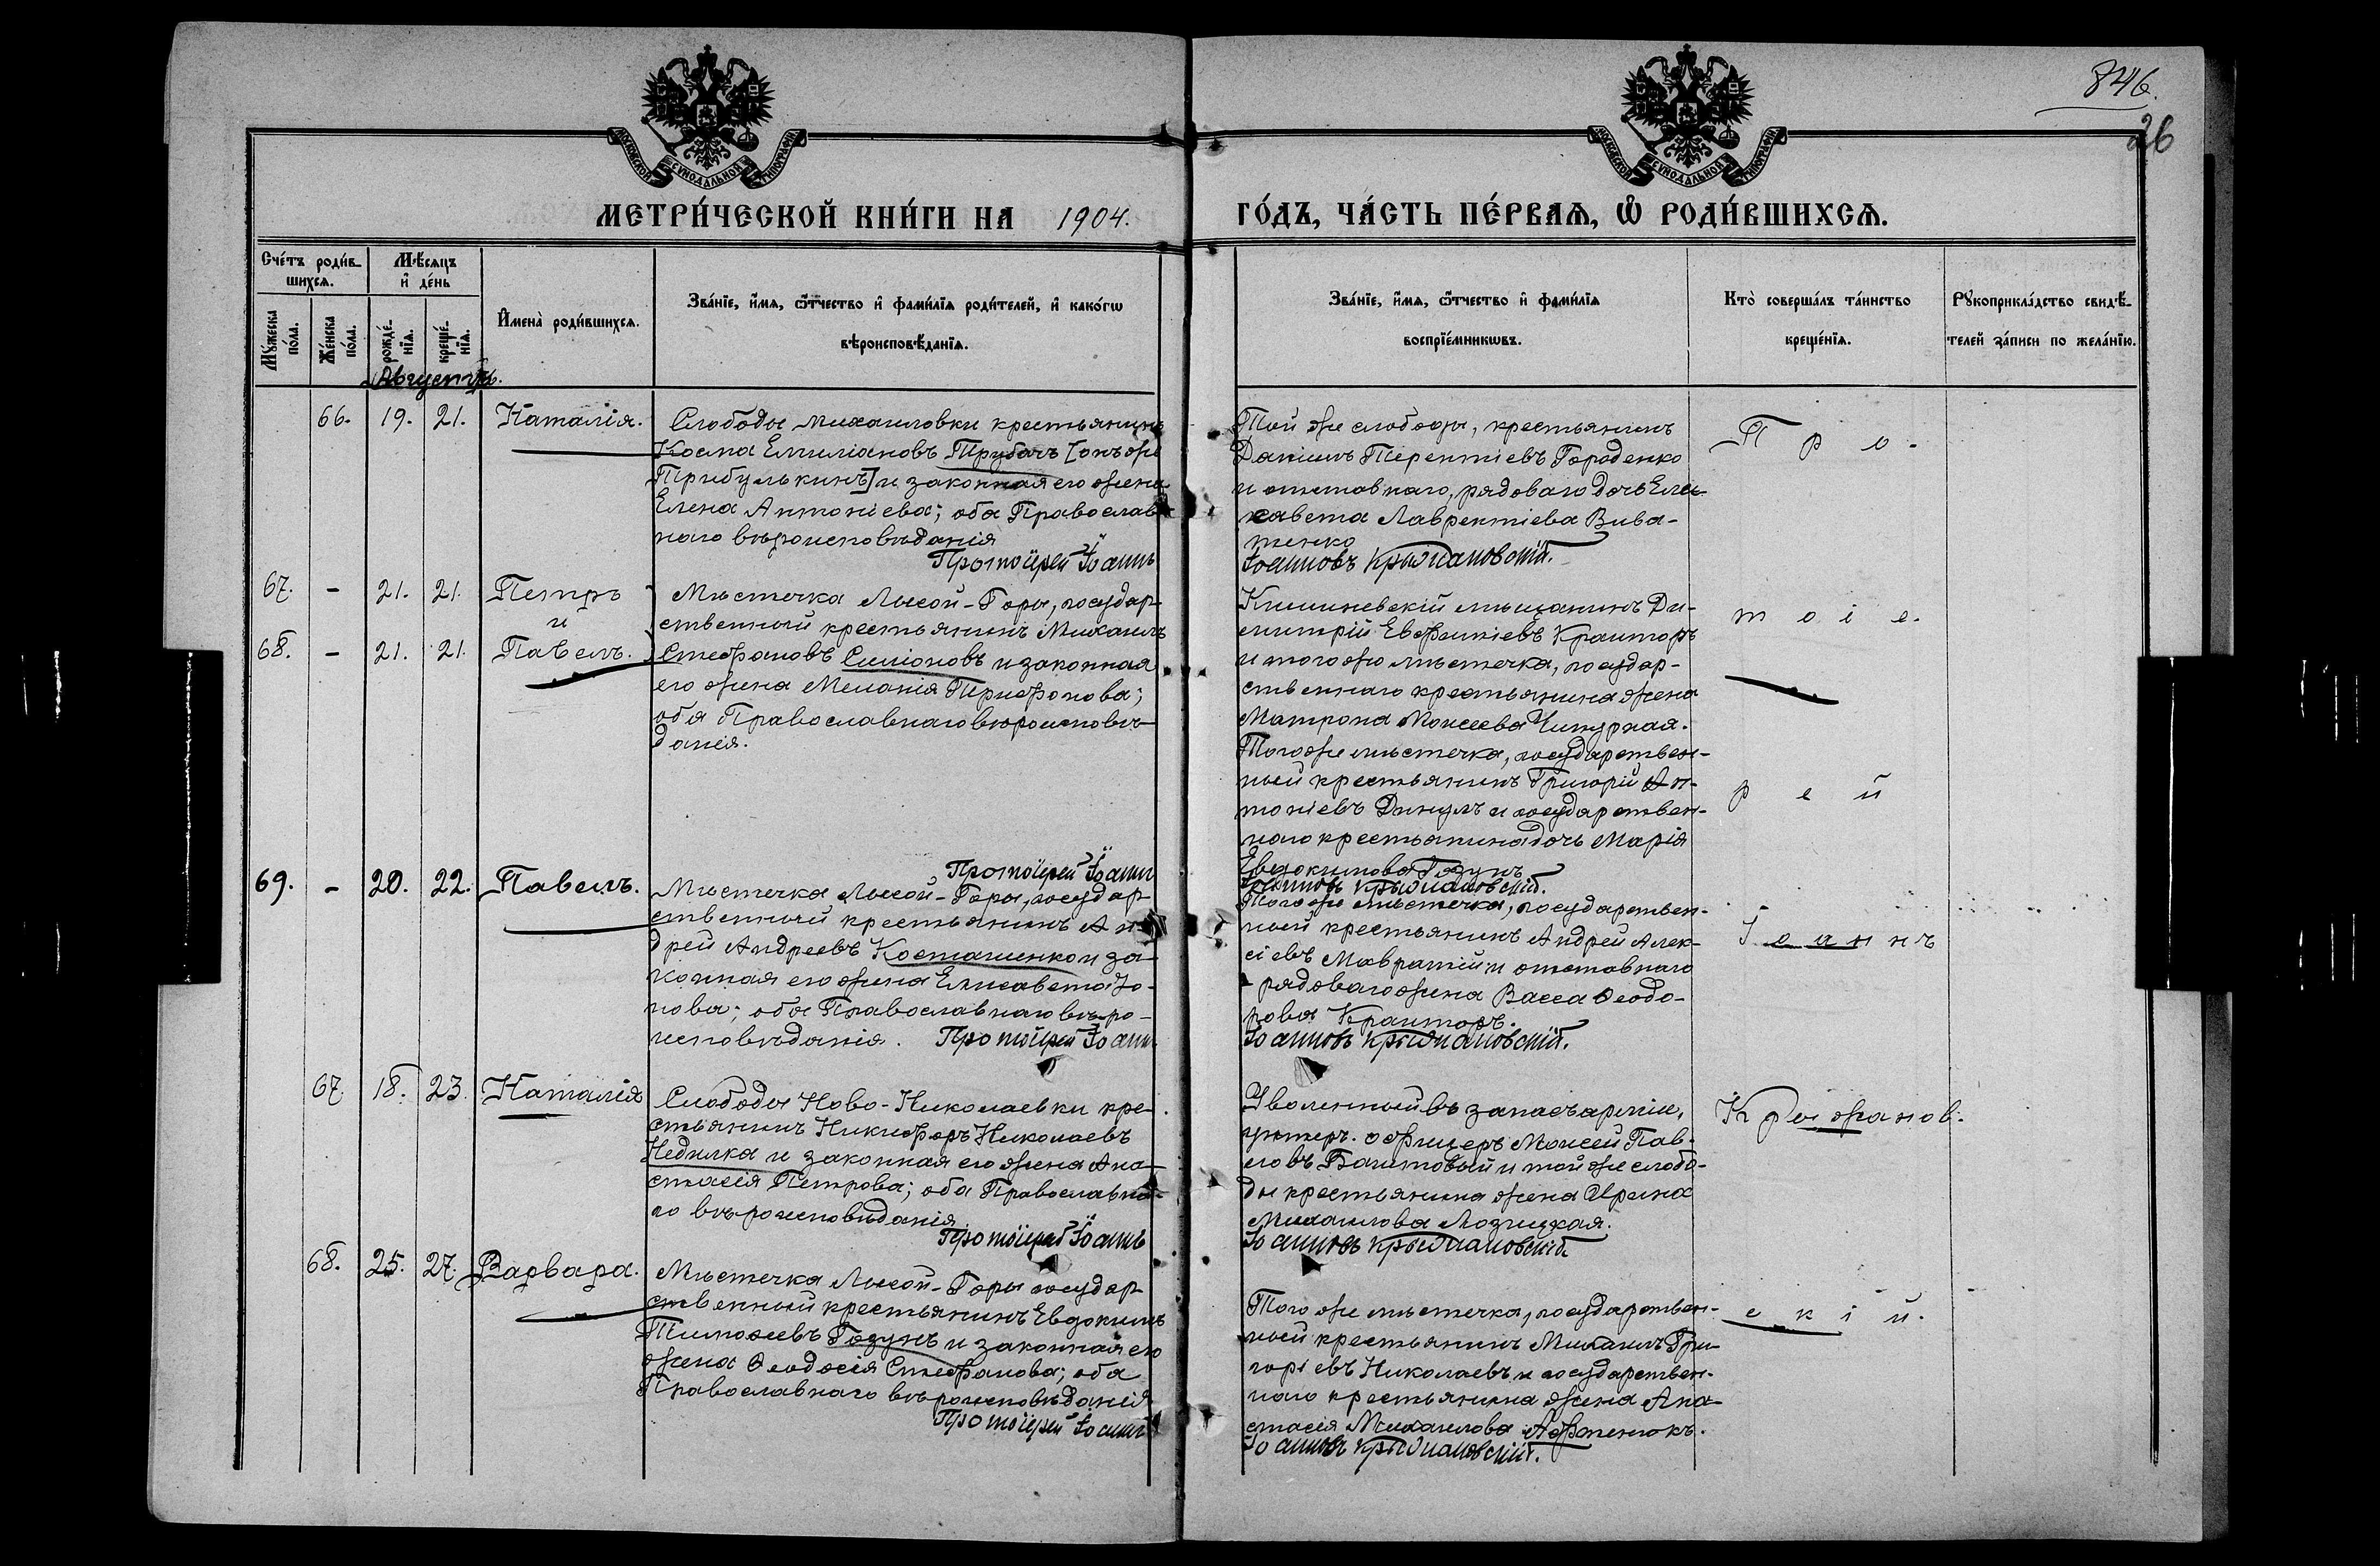 846.
26
МОСКОВСКОЙ СѴНОДАЛЬНОЙ ТИПОГРАФІИ
МОСКОВСКОЙ СѴНОДАЛЬНОЙ ТИПОГРАФІИ
МЕТРИ́ЧЕСКОЙ КНИ́ГИ НА 1904. ГО́ДЪ, ЧА́СТЬ ПЕ́РВАѦ, Ѡ҆ РОДИ́ВШИХСѦ.
Сче́тъ роди́в-
шихсѧ.
Мꙋ́жеска по́ла.
Же́нска по́ла.
Мѣ́сѧцъ
и҆ де́нь
рожде́-
нїѧ.
креще́-
нїѧ.
И҆мена̀ роди́вшихсѧ.
Зва́нїе, и҆́мѧ, ѻ҆́тчество и҆ фами́лїѧ роди́телей, и҆ како́гѡ
вѣроисповѣ́данїѧ.
Зва́нїе, и҆́мѧ, ѻ҆́тчество и҆ фами́лїѧ
воспрїе́мникѡвъ.
Кто̀ соверша́лъ та́инство
креще́нїѧ.
Рꙋкоприкла́дство свидѣ́-
телей за́писи по жела́нїю.
Августъ.
66. 19. 21. Наталія.
Слободы Михаиловки крестьянинъ
Косма Емиліановъ Трубачъ [онъ же
Трибулькинъ] и законная его жена
Елена Антоніева; оба Православ-
наго вѣроисповѣданія
Протоіерей Іоаннъ
Той же слободы, крестьянинъ
Даніилъ Терентіевъ Городенко
и отставнаго, рядоваго дочь Ели-
савета Лаврентіева Вива-
тенко
Іоанновъ Крыжановскій.
Про-
67. - 21. 21. Петръ
и
68. - 21. 21. Павелъ.
Мѣстечка Лысой-Горы, государ-
ственный крестьянинъ Михаилъ
Стефановъ Симоновъ и законная
его жена Меланія Трифонова;
оба Православнаго вѣроисповѣ-
данія.
Протоіерей Іоаннъ
Кишиневскій мѣщанинъ Ди-
митрій Евфиміевъ Кранторъ
и того же мѣстечка, государ-
ственнаго крестьянина жена
Матрона Моисеева Чипурная.
Того же мѣстечка, государствен-
ный крестьянинъ Григорій Ан-
тоніевъ Данулъ и государствен-
наго крестьянина дочь Марія
Евдокимова Годунъ
Іоанновъ Крыжановскій.
тоіе-
рей
69. - 20. 22. Павелъ.
Мѣстечка Лысой-Горы, государ-
ственный крестьянинъ Ан-
дрей Андреевъ Косташенко и за-
конная его жена Елисавета Іо-
нова; оба Православнаго вѣро-
исповѣданія. Протоіерей Іоаннъ
Того же мѣстечка, государствен-
ный крестьянинъ Андрей Алек-
сіевъ Мавратій и отставнаго
рядоваго жена Васса Ѳеодо-
рова Кранторъ.
Іоанновъ Крыжановскій.
Іоаннъ
67. 18. 23. Наталія
Слободы Ново-Николаевки кре-
стьянинъ Никифоръ Николаевъ
Недилка и законная его жена Ана-
стасія Петрова; оба Православна-
го вѣроисповѣданія.
Протоіерей Іоаннъ
Уволенный въ запасъ арміи,
унтеръ-офицеръ Моисей Пав-
ловъ Баштовый и той же слобо-
ды крестьянина жена Ирина
Михаилова Лозицкая.
Іоанновъ Крыжановскій
Крыжанов-
68. 25. 27. Варвара.
Мѣстечка Лысой-Горы государ-
ственный крестьянинъ Евдокимъ
Тимоѳеевъ Годунъ и законная его
жена Ѳеодосія Стефанова; оба
Православнаго вѣроисповѣданія
Протоіерей Іоаннъ
Того же мѣстечка, государствен-
ный крестьянинъ Михаилъ Гри-
горіевъ Николаевъ и государствен-
наго крестьянина жена Ана-
стасія Михаилова Афтенюкъ.
Іоанновъ Крыжановскій.
скій.